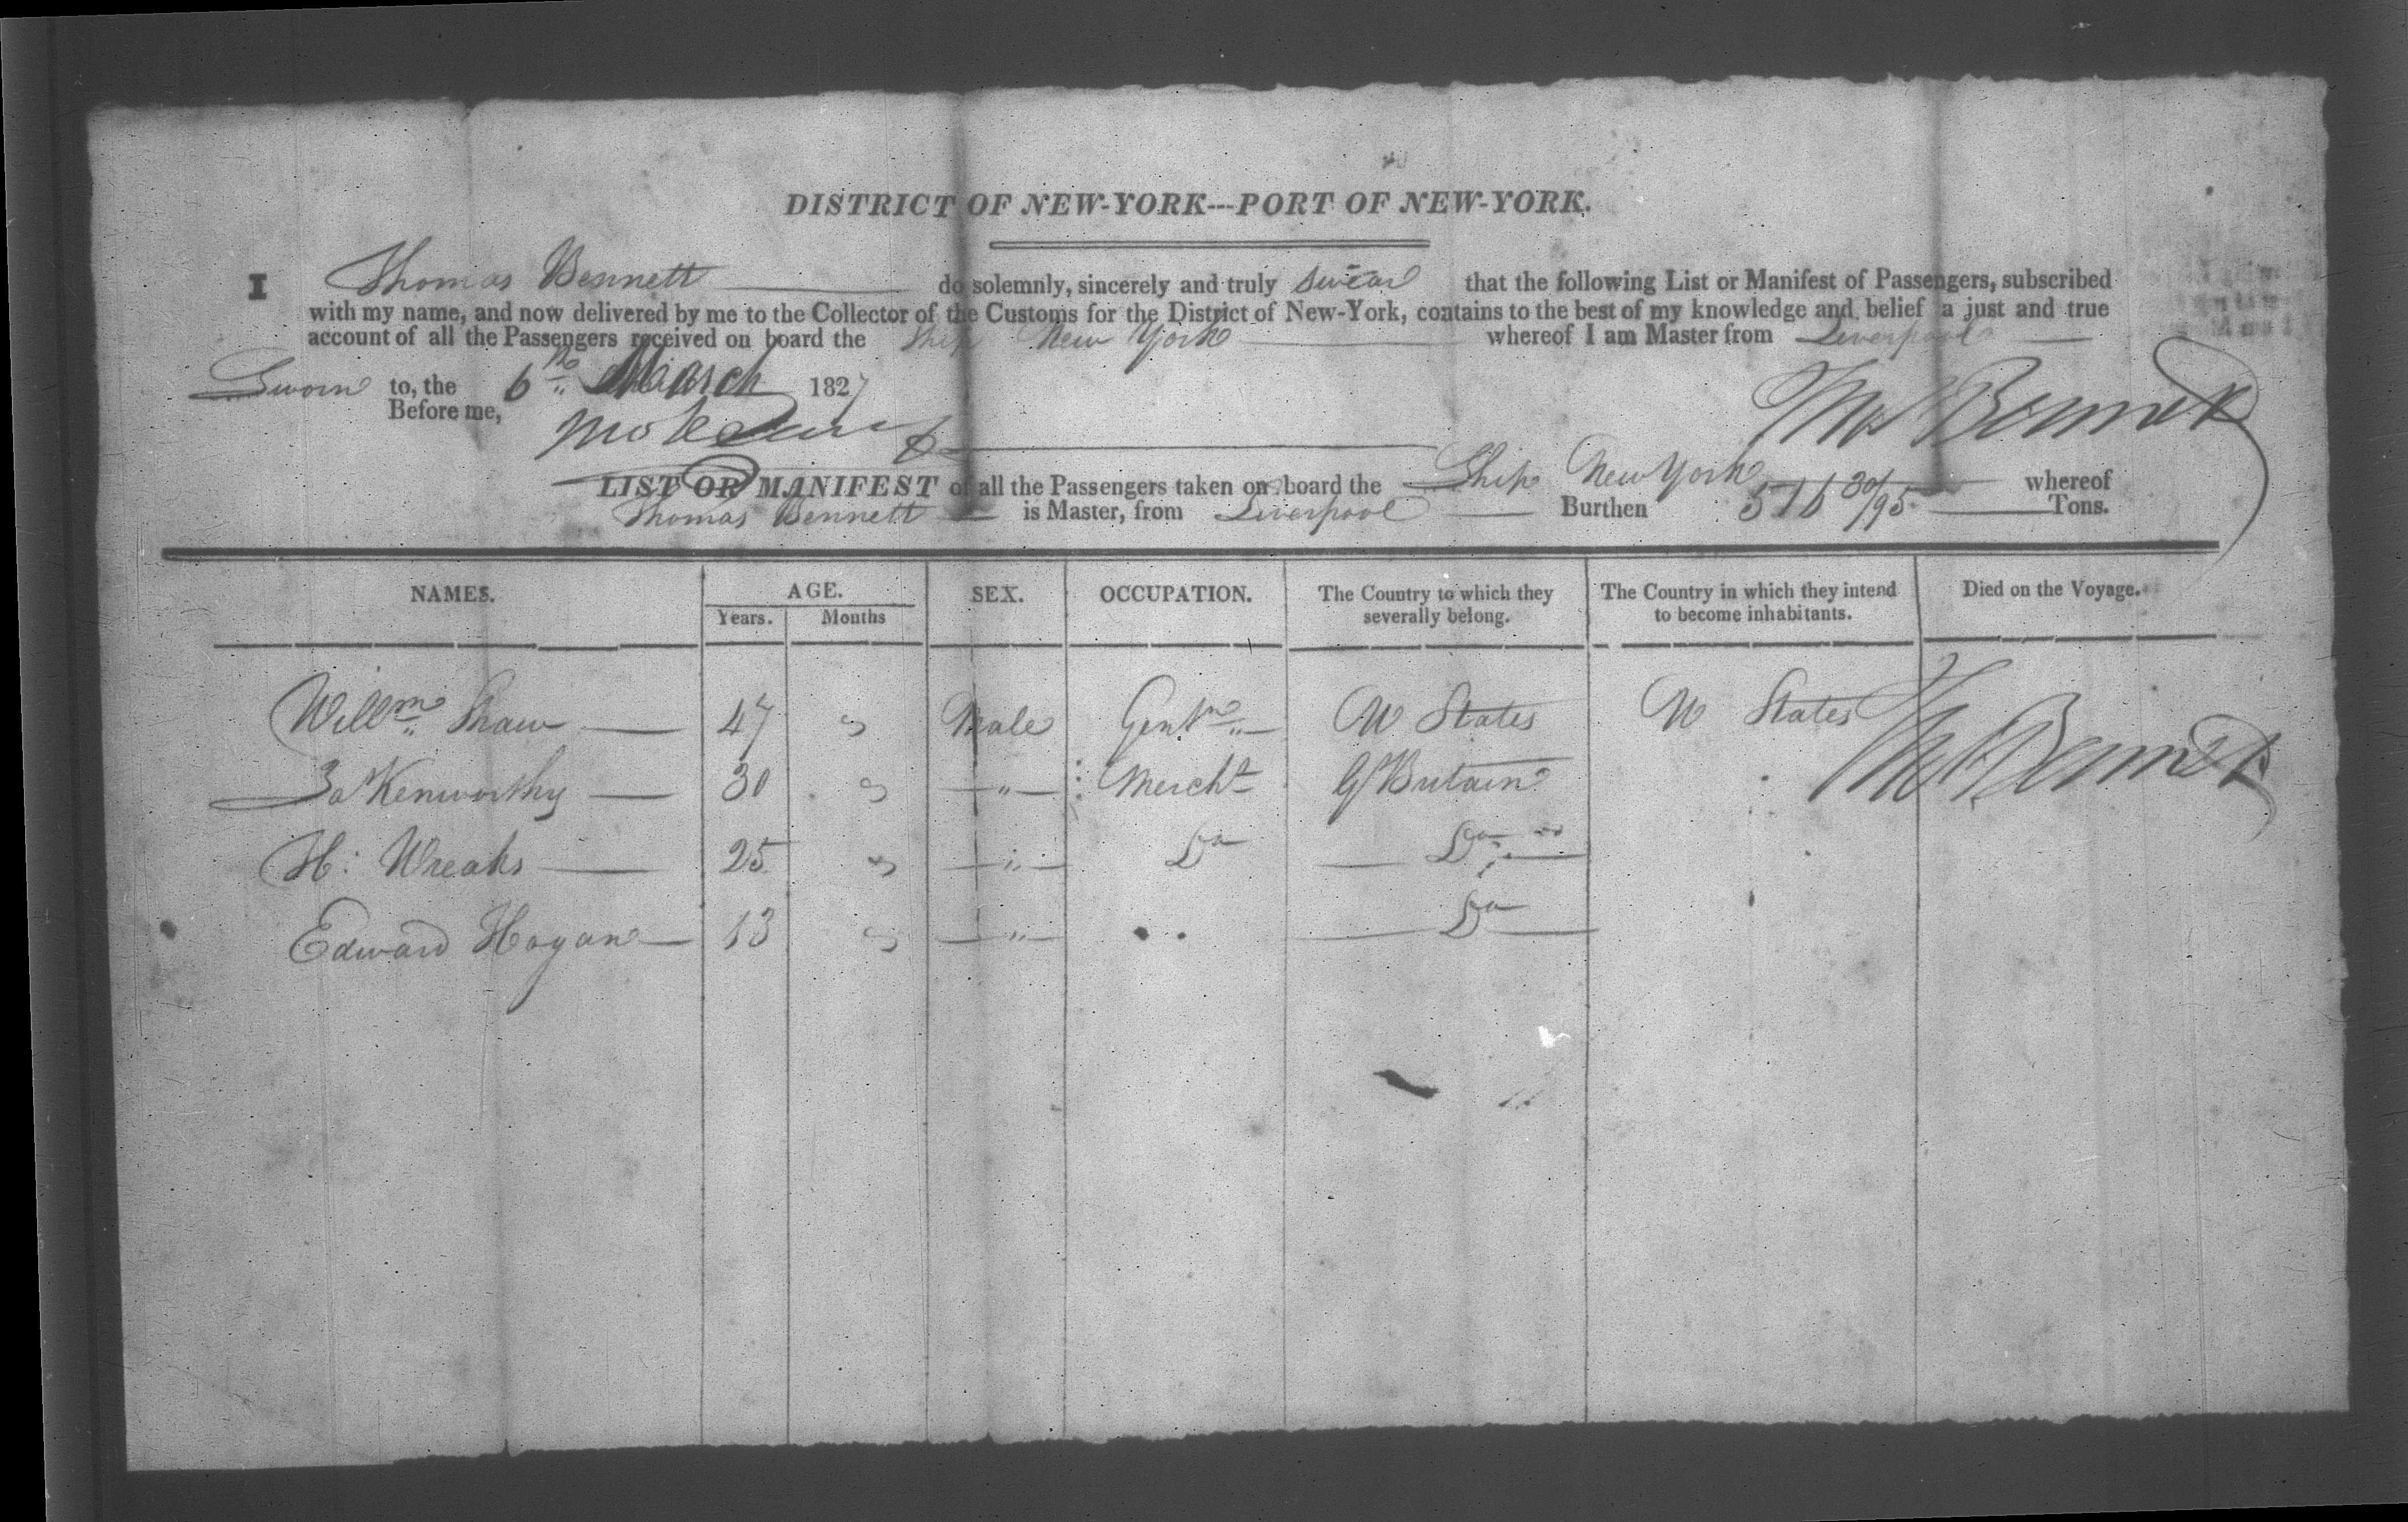 DISTRICT OF NEW-YORK---PORT OF NEW-YORK.
I Thomas Bennett do solemnly, sincerely and truly swear that the following List or Manifest of Passengers, subscribed
with my name, and now delivered by me to the Collector of the Customs for the District of New-York, contains to the best of my knowledge and belief a just and true
account of all the Passengers received on board the Ship New York whereof I am Master from Liverpool
Sworn to, the 6th March 1827
Before me,
Thos Bennett
LIST OR MANIFEST of all the Passengers taken on board the Ship New York whereof
Thomas Bennett is Master, from Liverpool Burthen 516 30/95 Tons.
NAMES. AGE. SEX. OCCUPATION. The Country to which they severally belong. The Country in which they intend to become inhabitants. Died on the Voyage.
Years. Months
Willm Shaw 47 " Male Gentn U States U States
Kenworthy 30 " " Mercht G Britain Thos Bennett
H: Wreaks 25 " " Do Do
Edward Hogan 13 " " Do